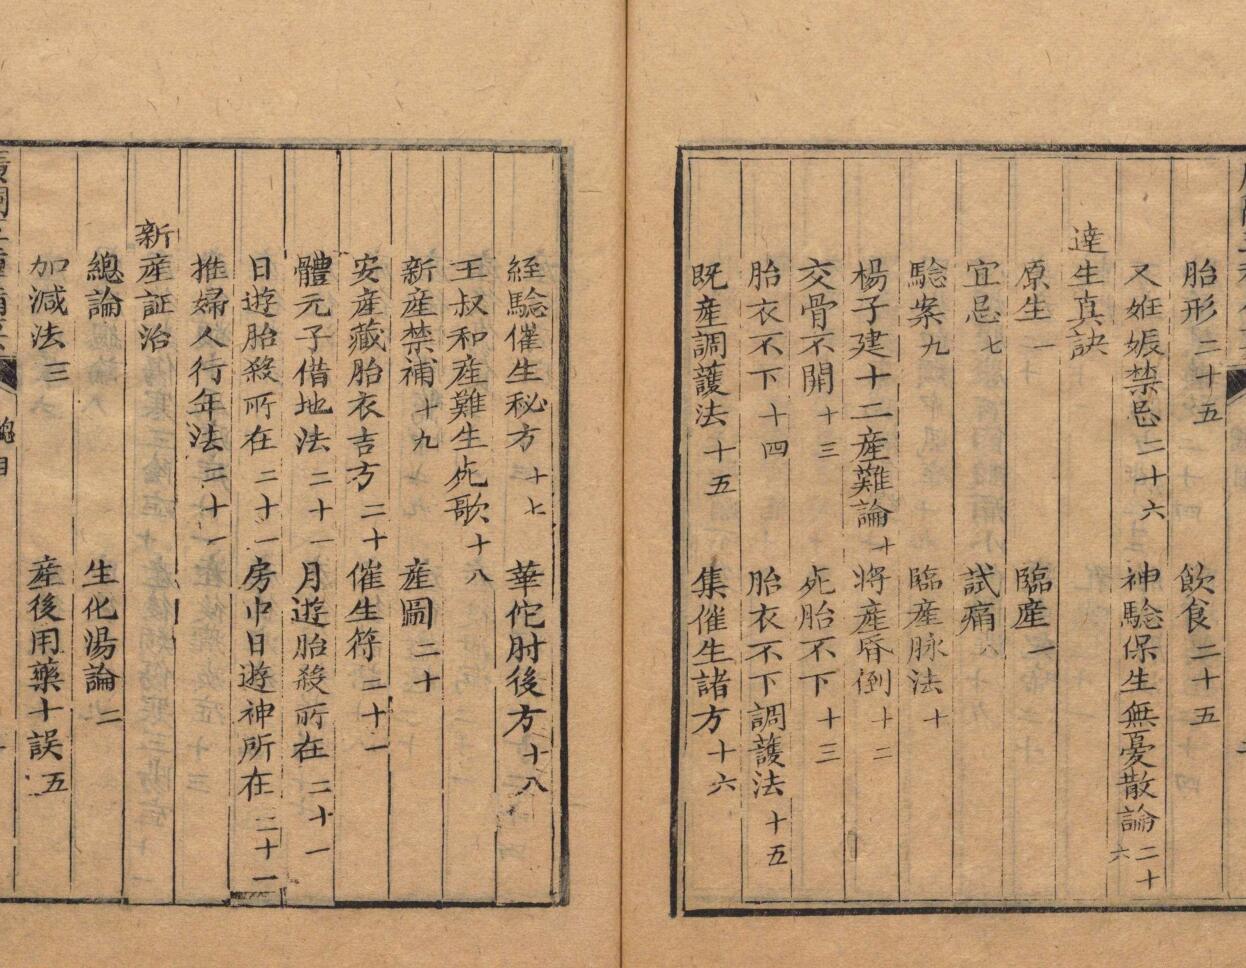 胎形二十五　飲食二十五
又姙娠禁忌二十六　神驗保生無憂散論二十六
達生真訣
原生一　臨産一
宜忌七　試痛八
驗案九　臨産脉法十
楊子建十二産難論十　將産昏倒十二
交骨不開十三　死胎不下十三
胎衣不下十四　胎衣不下調護法十五
既産調護法十五　集催生諸方十六
経驗催生秘方十七　華佗肘後方十八
王叔和産難生死歌十八
新産禁補十九　産圖二十
安産藏胎衣吉方二十　催生符二十一
體元子借地法二十一　月遊胎殺所在二十一
日遊胎殺所在二十一　房中日遊神所在二十一
推婦人行年法二十一
新産証治
總論　生化湯論二
加減法三　産後用藥十誤五
總目